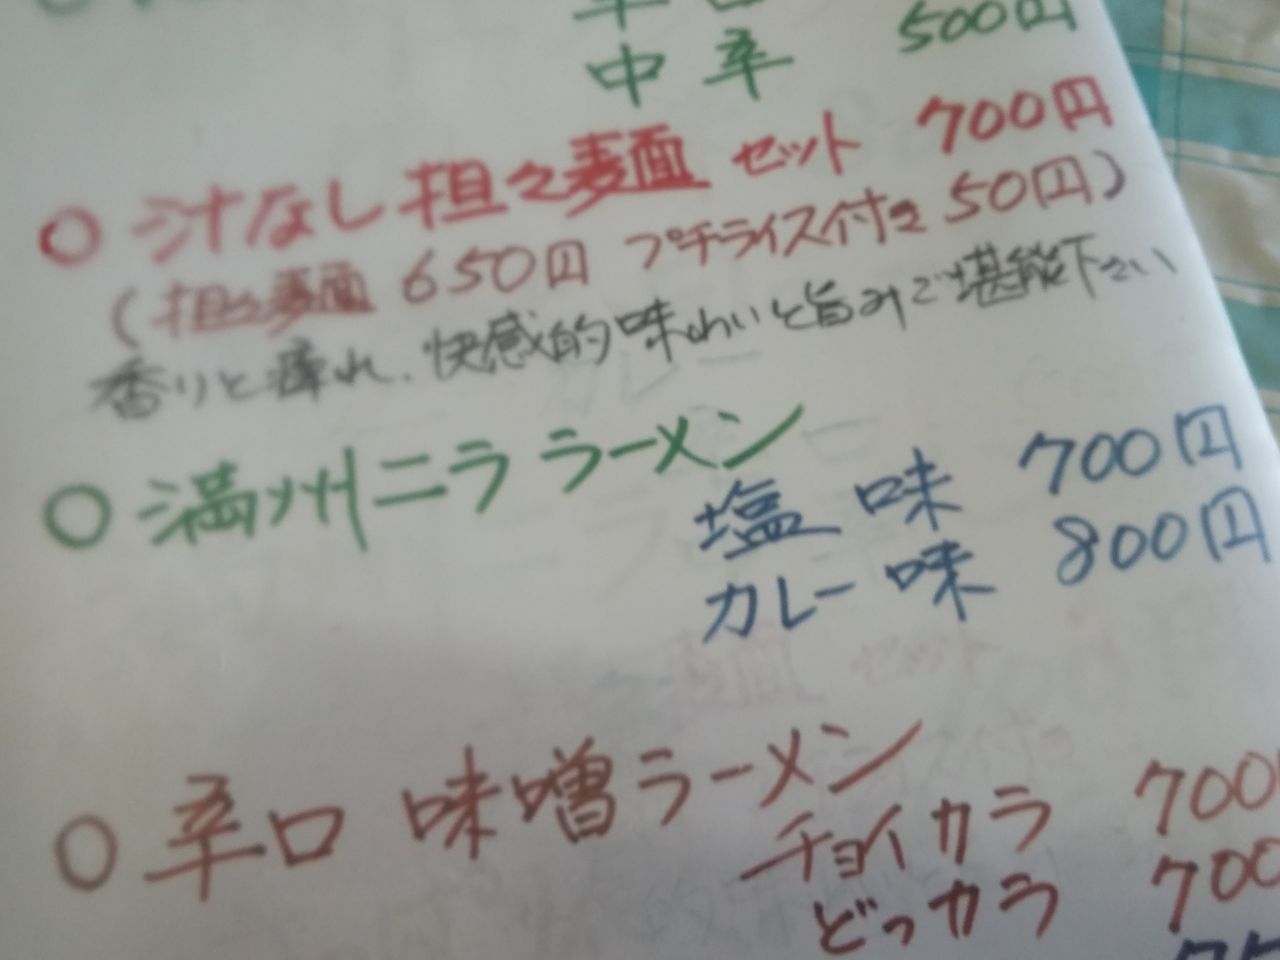 中辛 500円
○ 汁なし担々麺 セット 700円
(担々麺 650円 プチライス付き 50円)
香りと痺れ、快感的味わいと旨みご堪能下さい
○ 満州ニララーメン
塩味 700円
カレー味 800円
○ 辛口 味噌ラーメン
チョイカラ 700
どっカラ 700